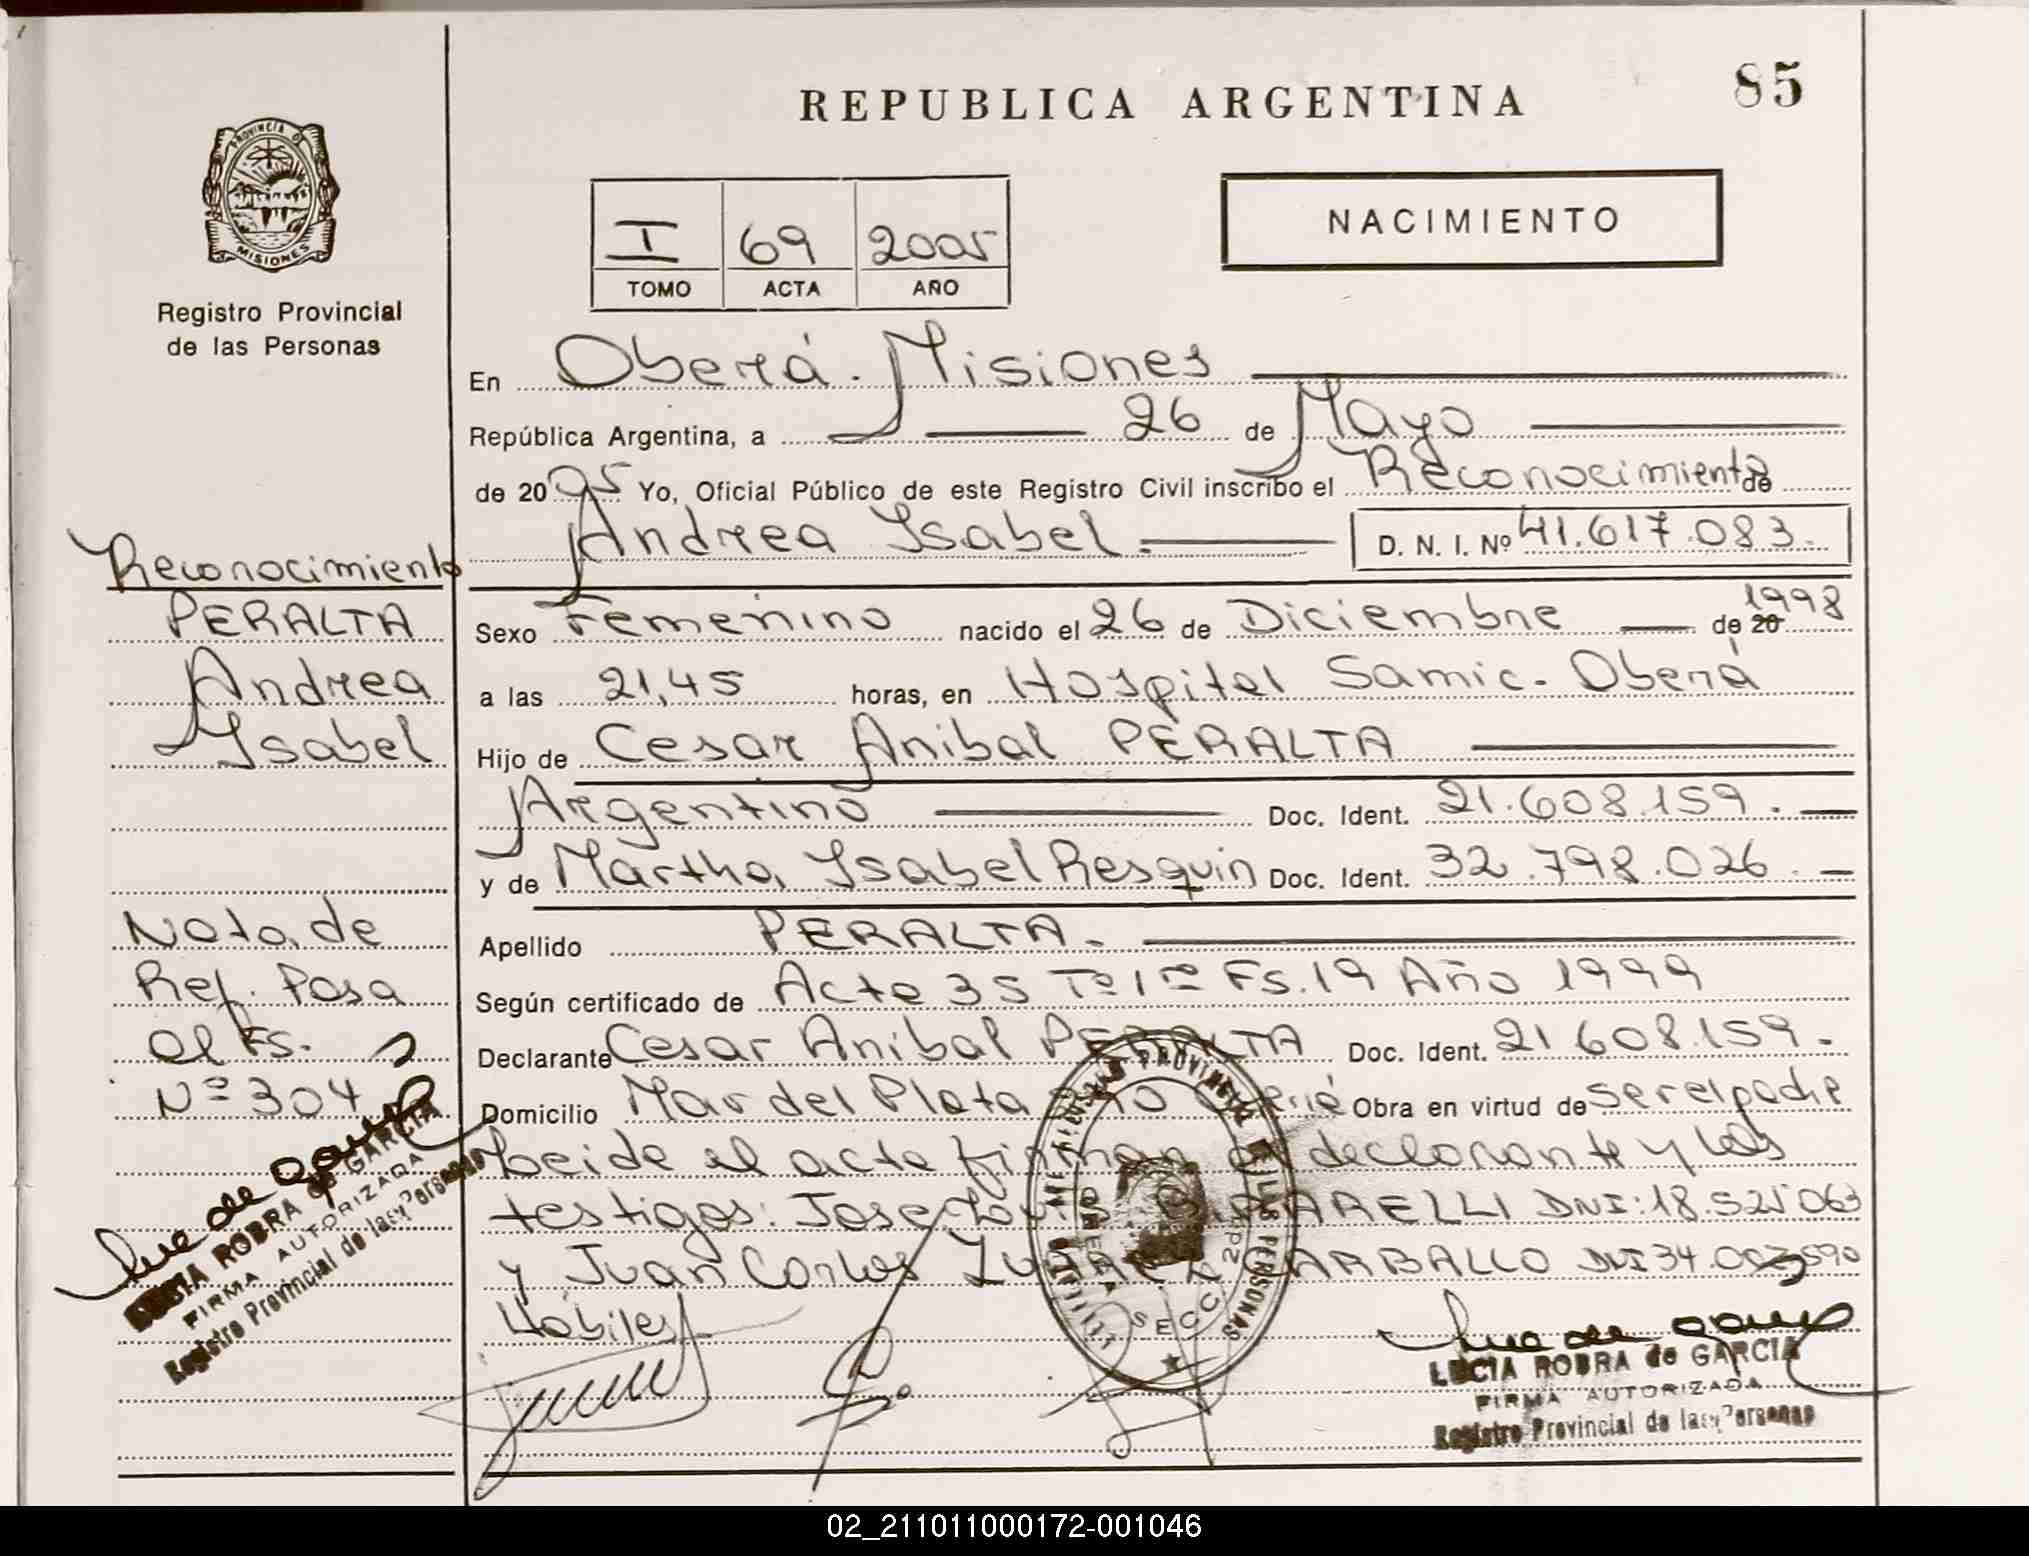 85
REPUBLICA ARGENTINA
PROVINCIA DE
MISIONES
Registro Provincial
de las Personas
I 69 2005
TOMO ACTA AÑO
NACIMIENTO
En Oberá. Misiones
República Argentina, a 26 de Mayo
de 2005 Yo, Oficial Público de este Registro Civil inscribo el Reconocimiento de
Andrea Isabel. D. N. I. Nº 41.617.083.
Sexo Femenino nacido el 26 de Diciembre de 20 1998
a las 21,45 horas, en Hospital Samic. Oberá
Hijo de Cesar Anibal PERALTA
Argentino Doc. Ident. 21.608.159.
y de Martha Isabel Resquin Doc. Ident. 32.798.026.
Apellido PERALTA.
Según certificado de Acta 35 Tº 1º Fs. 19 Año 1999
Declarante Cesar Anibal PERALTA Doc. Ident. 21 608.159.
Domicilio Mar del Plata Obra en virtud de ser el padre
Leida el acta firman el declarante y los
testigos: Jose Luis DNI: 18.525063
y Juan Carlos CARBALLO DNI 34.003590
Habiles
Reconocimiento
PERALTA
Andrea
Isabel
Nota de
Ref. Pasa
al Fs.
Nº 304
LUCIA ROBRA de GARCIA
FIRMA AUTORIZADA
Registro Provincial de las Personas
SECC.
LUCIA ROBRA de GARCIA
FIRMA AUTORIZADA
Registro Provincial de las Personas
02_211011000172-001046